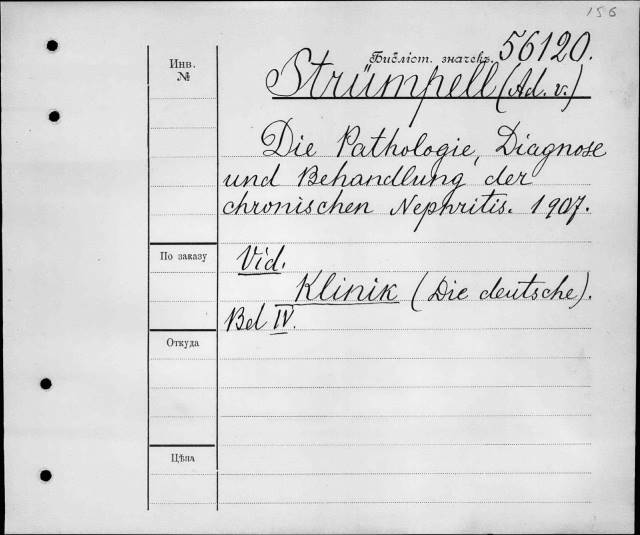 156
Библіот. значекъ. 56120.
Инв.
№
Strümpell (Ad. v.)
Die Pathologie, Diagnose
und Behandlung der
chronischen Nephritis. 1907.
По заказу
Vid.
Klinik (Die deutsche).
Bd IV.
Откуда
Цѣна